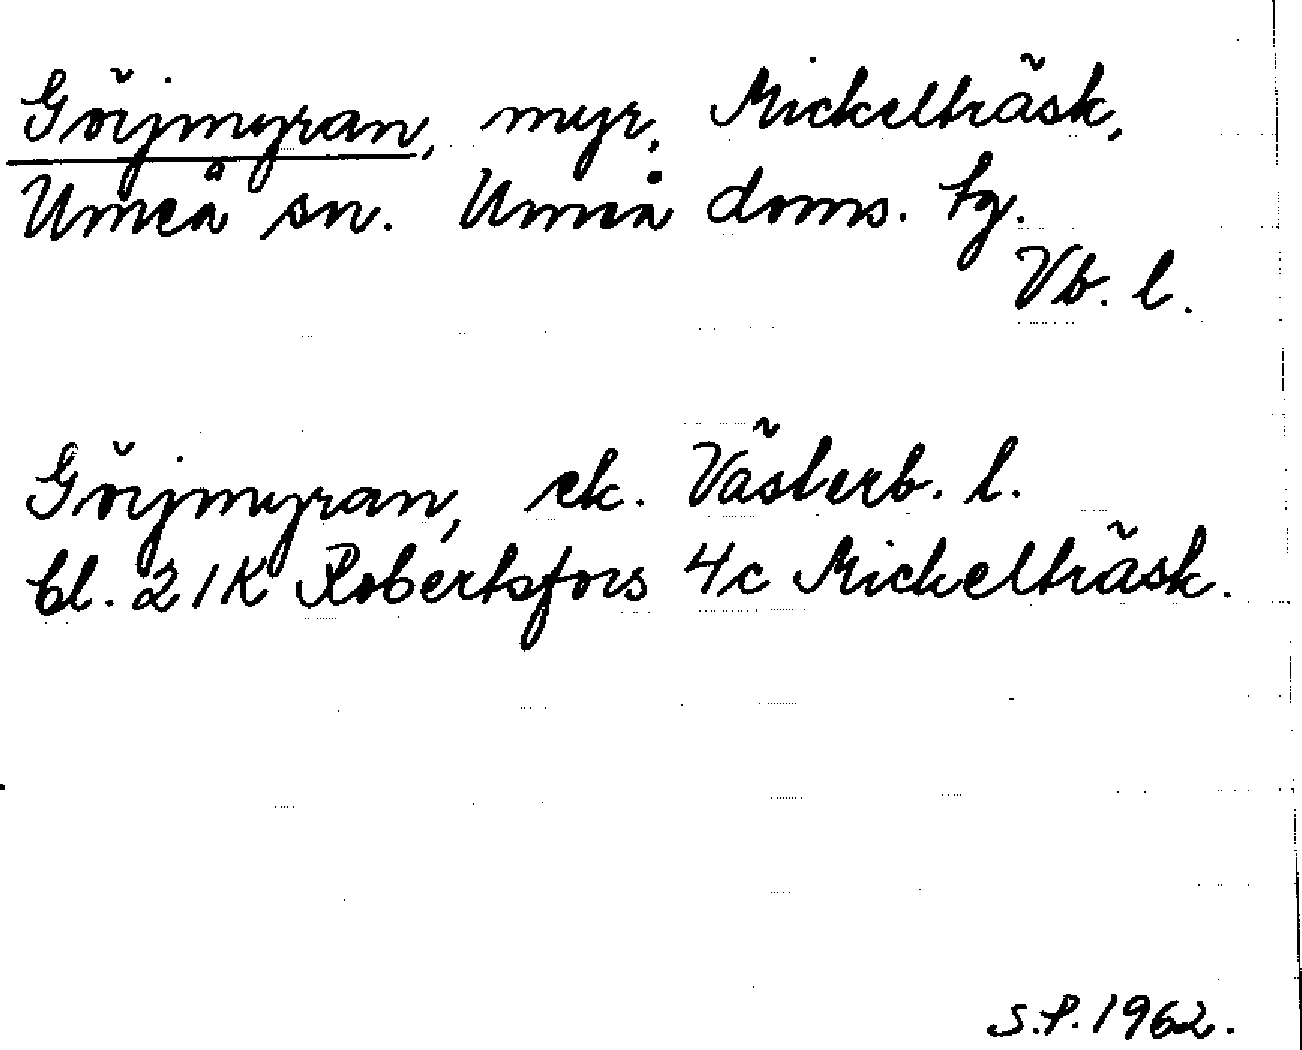 Görjmyran, myr, Mickelträsk,
Umeå sn. Umeå doms. tg.
Vb. l.
Görjmyran, ek. Västerb. l.
bl. 21K Robertsfors 4c Mickelträsk.
S.P. 1962.